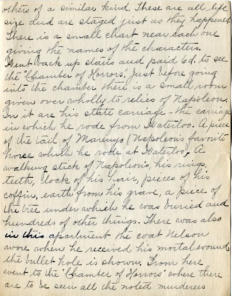 others of a similar kind. These are all life
size and are staged just as they happened.
There is a small chart near each one
giving the names of the characters.
Went back up stairs and paid 6d. to see
the "Chamber of Horrors". Just before going
into the chamber there is a small room
given over wholly to relics of Napoleon.
In it are his state carriage - the carriage
in which he rode from Waterloo. A piece
of the tail of Marengo, Napoleon's favorite
horse which he rode at Waterloo. A
walking stick of Napoleon's, his rings,
teeth, lock of his hair, pieces of his
coffin, earth from his grave, a piece of
the tree under which he was buried and
hundreds of other things. There was also
in this apartment the coat Nelson
wore when he received his mortal wound
the bullet hole is shown. From here
went to the "Chamber of Horrors" where there
are to be seen all the noted murderers